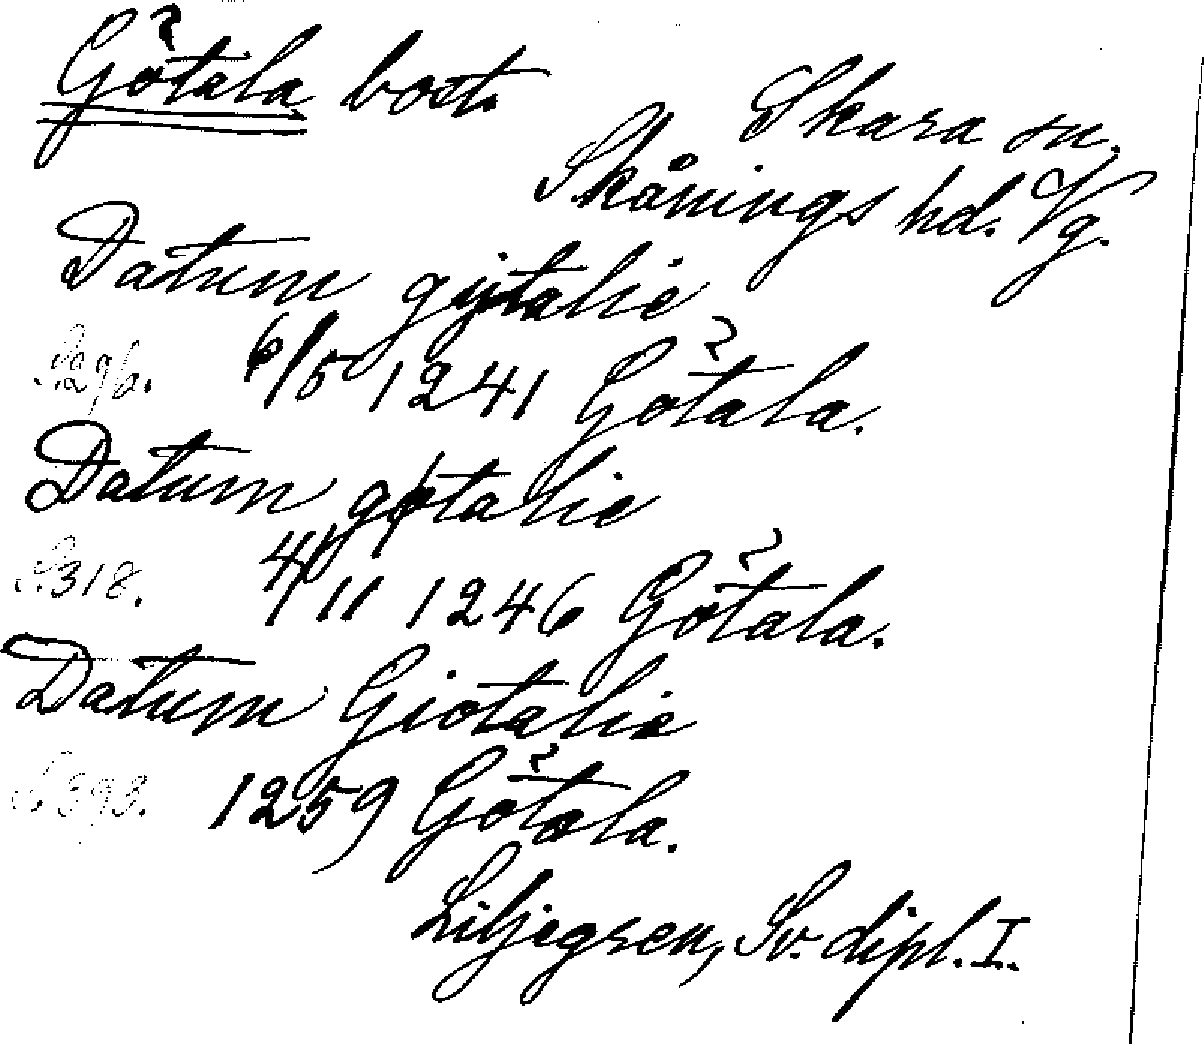 Götala bost.
Skara sn.
Skånings hd. Vg.
Datum gijtalie
S. 296. 6/5 1241 Götala.
Datum gøtalie
S. 318. 4/11 1246 Götala.
Datum Giotalie
S. 393. 1259 Götala.
Liljegren, Sv. dipl. I.